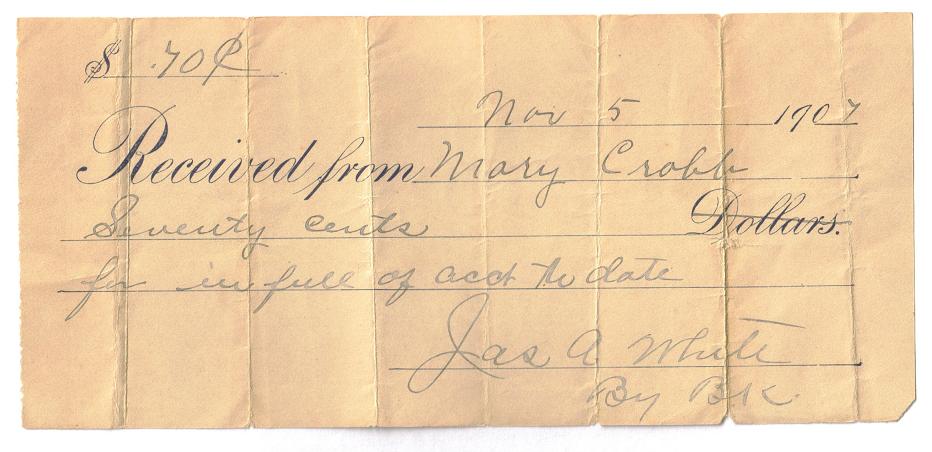 $ .70¢
Nov 5 1907
Received from Mary Crabb
Seventy cents Dollars.
for in full of acct to date
Jas A White
By BK.